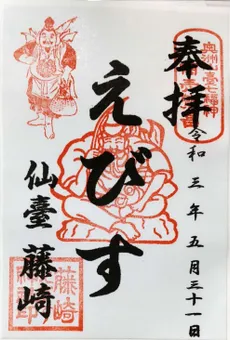 奉拝
令和三年五月三十一日
えびす
仙臺藤崎
奥州仙臺七福神
藤崎